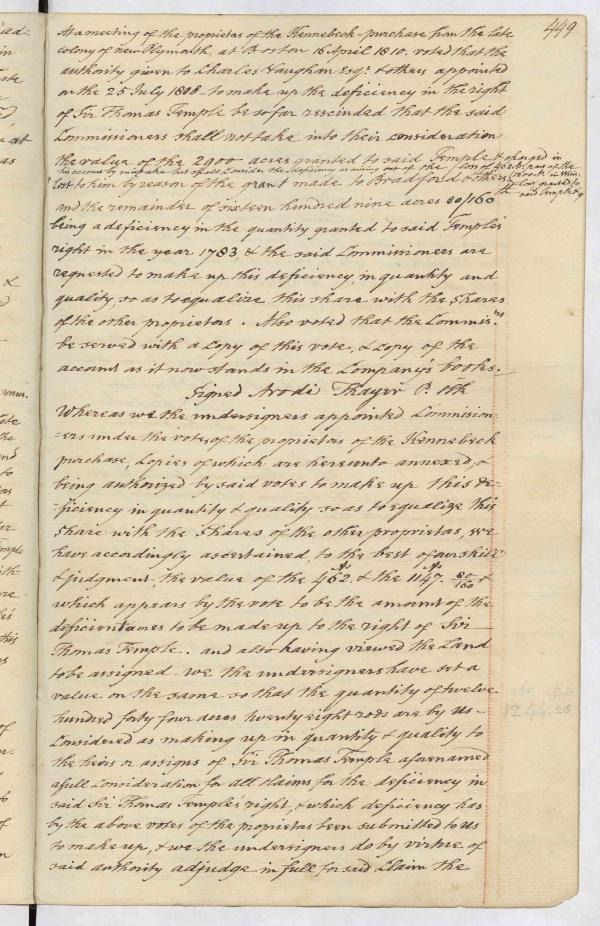 449
At a meeting of the proprietas of the Kennebeck purchase from the late
colony of new Plymouth, at Boston 16 April 1810. voted that the
authority given to Charles Vaughan Esqr. & others appointed
on the 25 July 1808. to make up the deficiency in the right
of Sir Thomas Temple be so far rescinded that the said
Commissioners shall not take into their consideration
the value of the 2900 acres granted to said Temple & charged in
his account by mistake but shall consider the deficiency as arising out of the loss of 462 As. part of the
1200 A. in Wins-
low granted to
said Temple &
lost to him by reason of the grant made to Bradford & others
and the remainder of sixteen hundred nine acres 80/160
being a deficiency in the quantity granted to said Temple's
right in the year 1783 & the said Commissioners are
requested to make up this deficiency, in quantity and
quality, so as to equalize this share with the shares
of the other proprietors. Also voted that the Commisrs.
be served with a copy of this vote, & copy of the
account as it now stands in the Company's books.
Signed Arodi Thayer P. Clk
Whereas we the undersigners appointed Commission-
=ers under the votes of the proprietas of the Kennebeck
purchase, Copies of which are hereunto annexed, &
being authorized by said votes to make up this de-
=ficiency in quantity & quality so as to equalize this
share with the shares of the other proprietas, we
have accordingly ascertained, to the best of our skill
& judgment, the value of the 462 As. & the 1147 As. 80/160 &
which appears by the vote to be the amount of the
deficient acres to be made up to the right of Sir
Thomas Temple. and also having viewed the Land
to be assigned we the undersigners have set a
value on the same so that the quantity of twelve
hundred forty four acres twenty eight rods are by us
Considered as making up in quantity & quality to
the heirs or assigns of Sir Thomas Temple aforenamed
a full Consideration for all claims for the deficiency in
said Sir Thomas Temple's right, & which deficiency has
by the above votes of the proprietas been submitted to us
to make up, & we the undersigners do by virtue of
said authority adjudge in full for said Claim the
1244.28